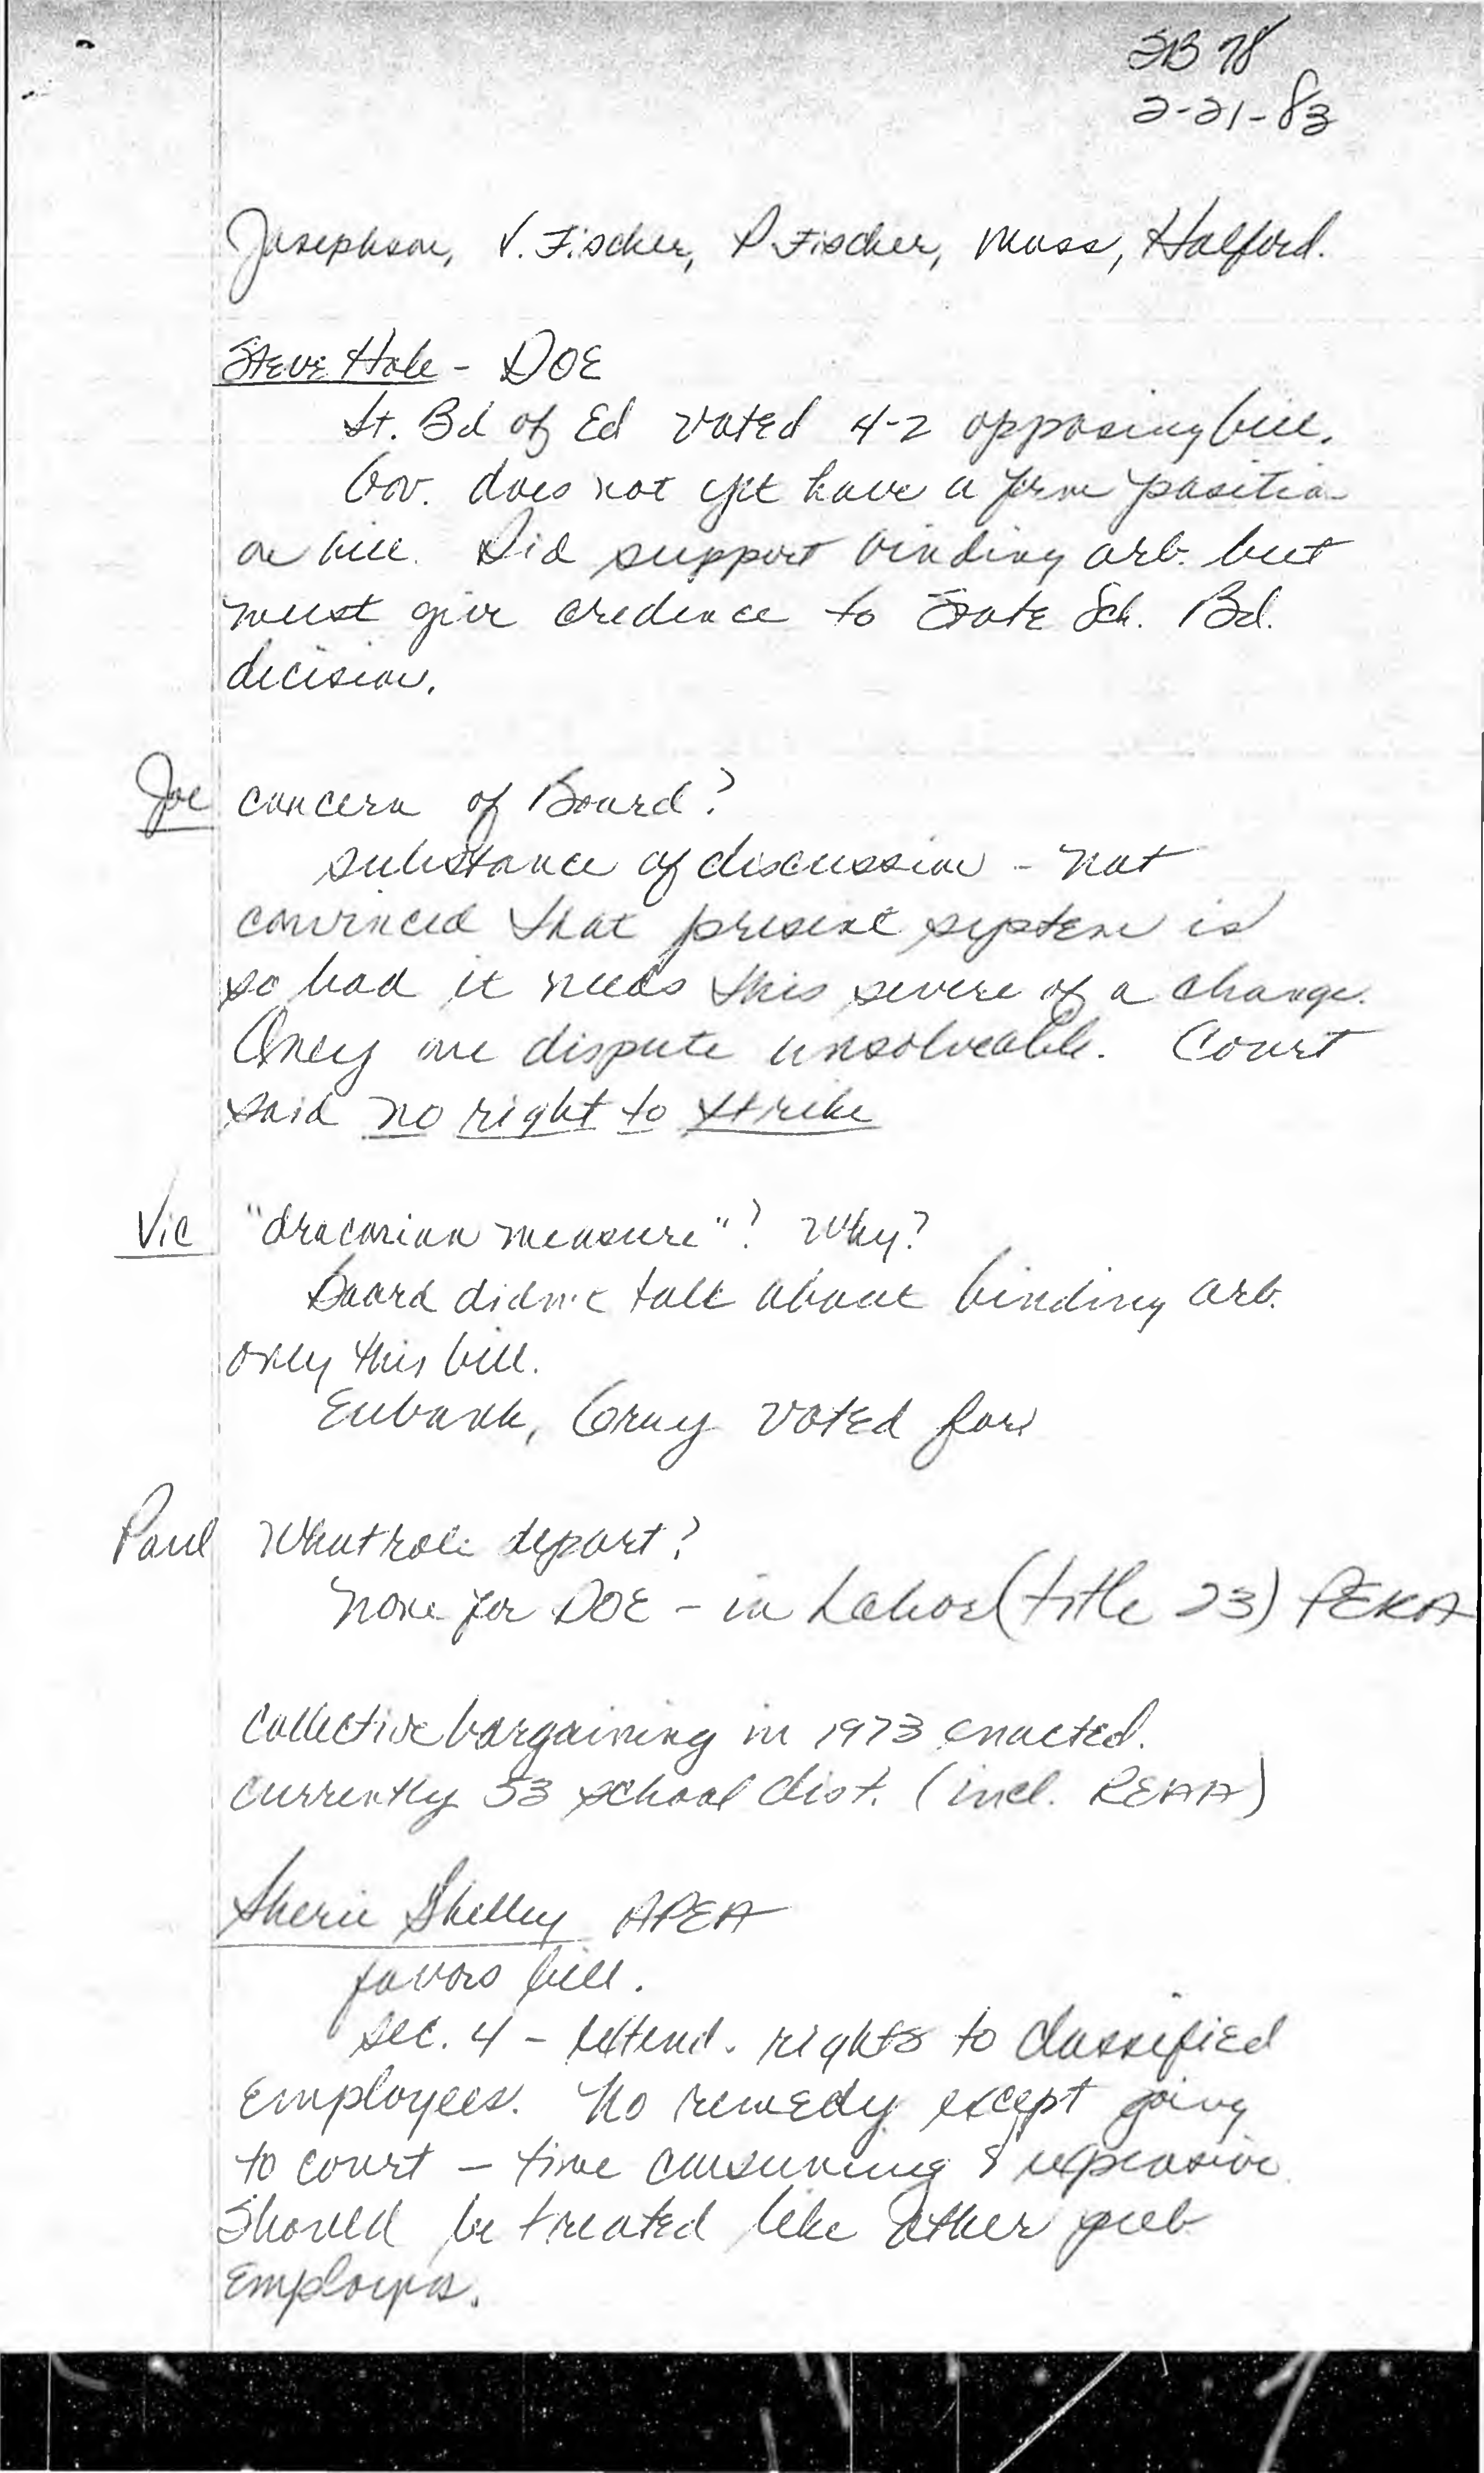 SB 78
2-21-83
Josephson, V. Fischer, P. Fischer, Moss, Halford.
Steve Hole - DOE
St. Bd of Ed voted 4-2 opposing bill.
Gov. does not yet have a firm position
on bill. Did support binding arb. but
must give credence to State Sch. Bd.
decision.
Joe concern of Board?
substance of discussion - not
convinced that present system is
so bad it needs this severe of a change.
Only one dispute unsolveable. Court
said no right to strike
Vic "draconian measure"? Why?
Board didn't talk about binding arb.
only this bill.
Eubank, Gray voted for
Paul What role depart?
none for DOE - in Labor (title 23) PERA
Collective bargaining in 1973 enacted.
Currently 53 school dist. (incl. REAA)
Sherie Shelley APEA
favors bill.
Sec. 4 - extend. rights to classified
employees. No remedy except going
to court - time consuming & expensive
Should be treated like other pub
employees.